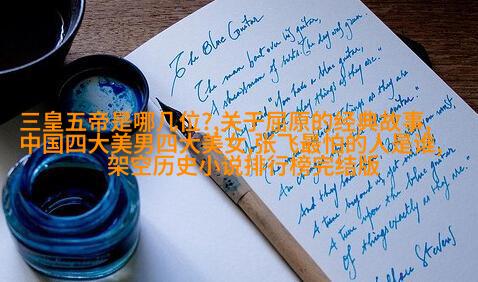 The Blue Guitar
The man bent over his guitar,
A shearsman of sorts. The day was green.
"You have a blue guitar,
things as they are."
as they are
三皇五帝是哪几位?,关于屈原的经典故事,
中国四大美男四大美女,张飞最怕的人是谁,
架空历史小说排行榜完结版
And they said
A tune beyond us, yet ourselves,
A tune upon the blue guitar
Of things exactly as they are."
Wallace Stevens